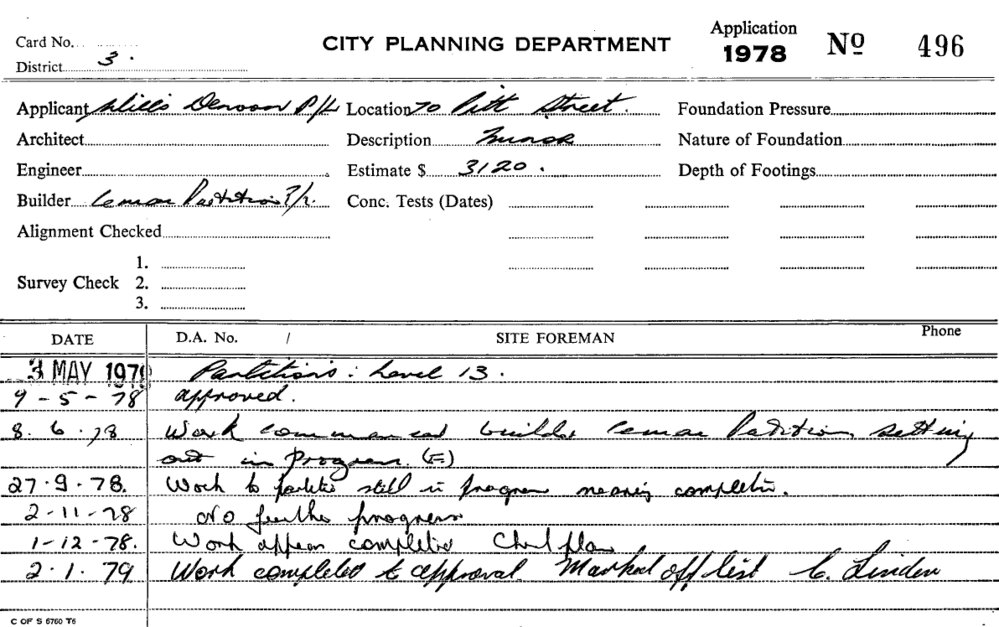 Card No.
District 3.
CITY PLANNING DEPARTMENT
Application
1978 No 496
Applicant Willis Denoon P/L Location 70 Pitt Street.
Foundation Pressure
Architect
Description
Nature of Foundation
Engineer
Estimate $ 3120.
Depth of Footings
Builder Partition P/L.
Conc. Tests (Dates)
Alignment Checked
Survey Check 1.
2.
3.
DATE D.A. No. / SITE FOREMAN Phone
3 MAY 1978 Partitions: Level 13.
9-5-78 approved.
8.6.78 Work commenced builder Partition setting
out in progress.
27.9.78. Work to still in progress nearing completion.
2-11-78 No further progress
1-12-78. Work appears completed
2.1.79 Work completed to approval. Marked off list C. Linden
C OF S 6760 T6